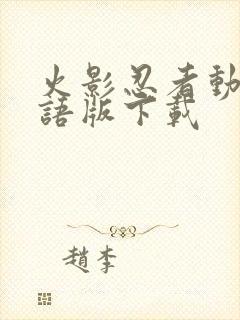 火影忍者動
語版下載
趙李